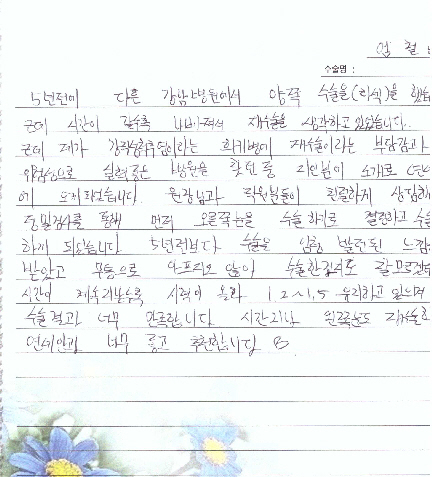 엄 철
수술명 :
5년전에 다른 강남병원에서 양쪽 수술을 (라식)을 했
근데 시간이 갈수록 나빠져서 재수술을 생각하고 있었습니다.
근데 제가 각막이라는 희귀병에 재수술이라는 부담감과
실력좋은 병원을 찾던 중 지인분이 소개로
에 오게되었습니다. 원장님과 직원분들이 친절하게 상담
정밀검사를 통해 먼저 오른쪽눈을 수술 하기로 결정하고 수술
하게 되었습니다 5년전보다 수술을 발전된 느낌
받았고 무통으로 아프지도 않이 수술한걸지도 잘모르겠
시간이 계속 지날수록 시력이 올라 1.2~1.5 유지하고 있으며
수술결과 너무 만족합니다 시간지나 왼쪽눈도 재수술
연세안과 너무 좋고 추천합니다